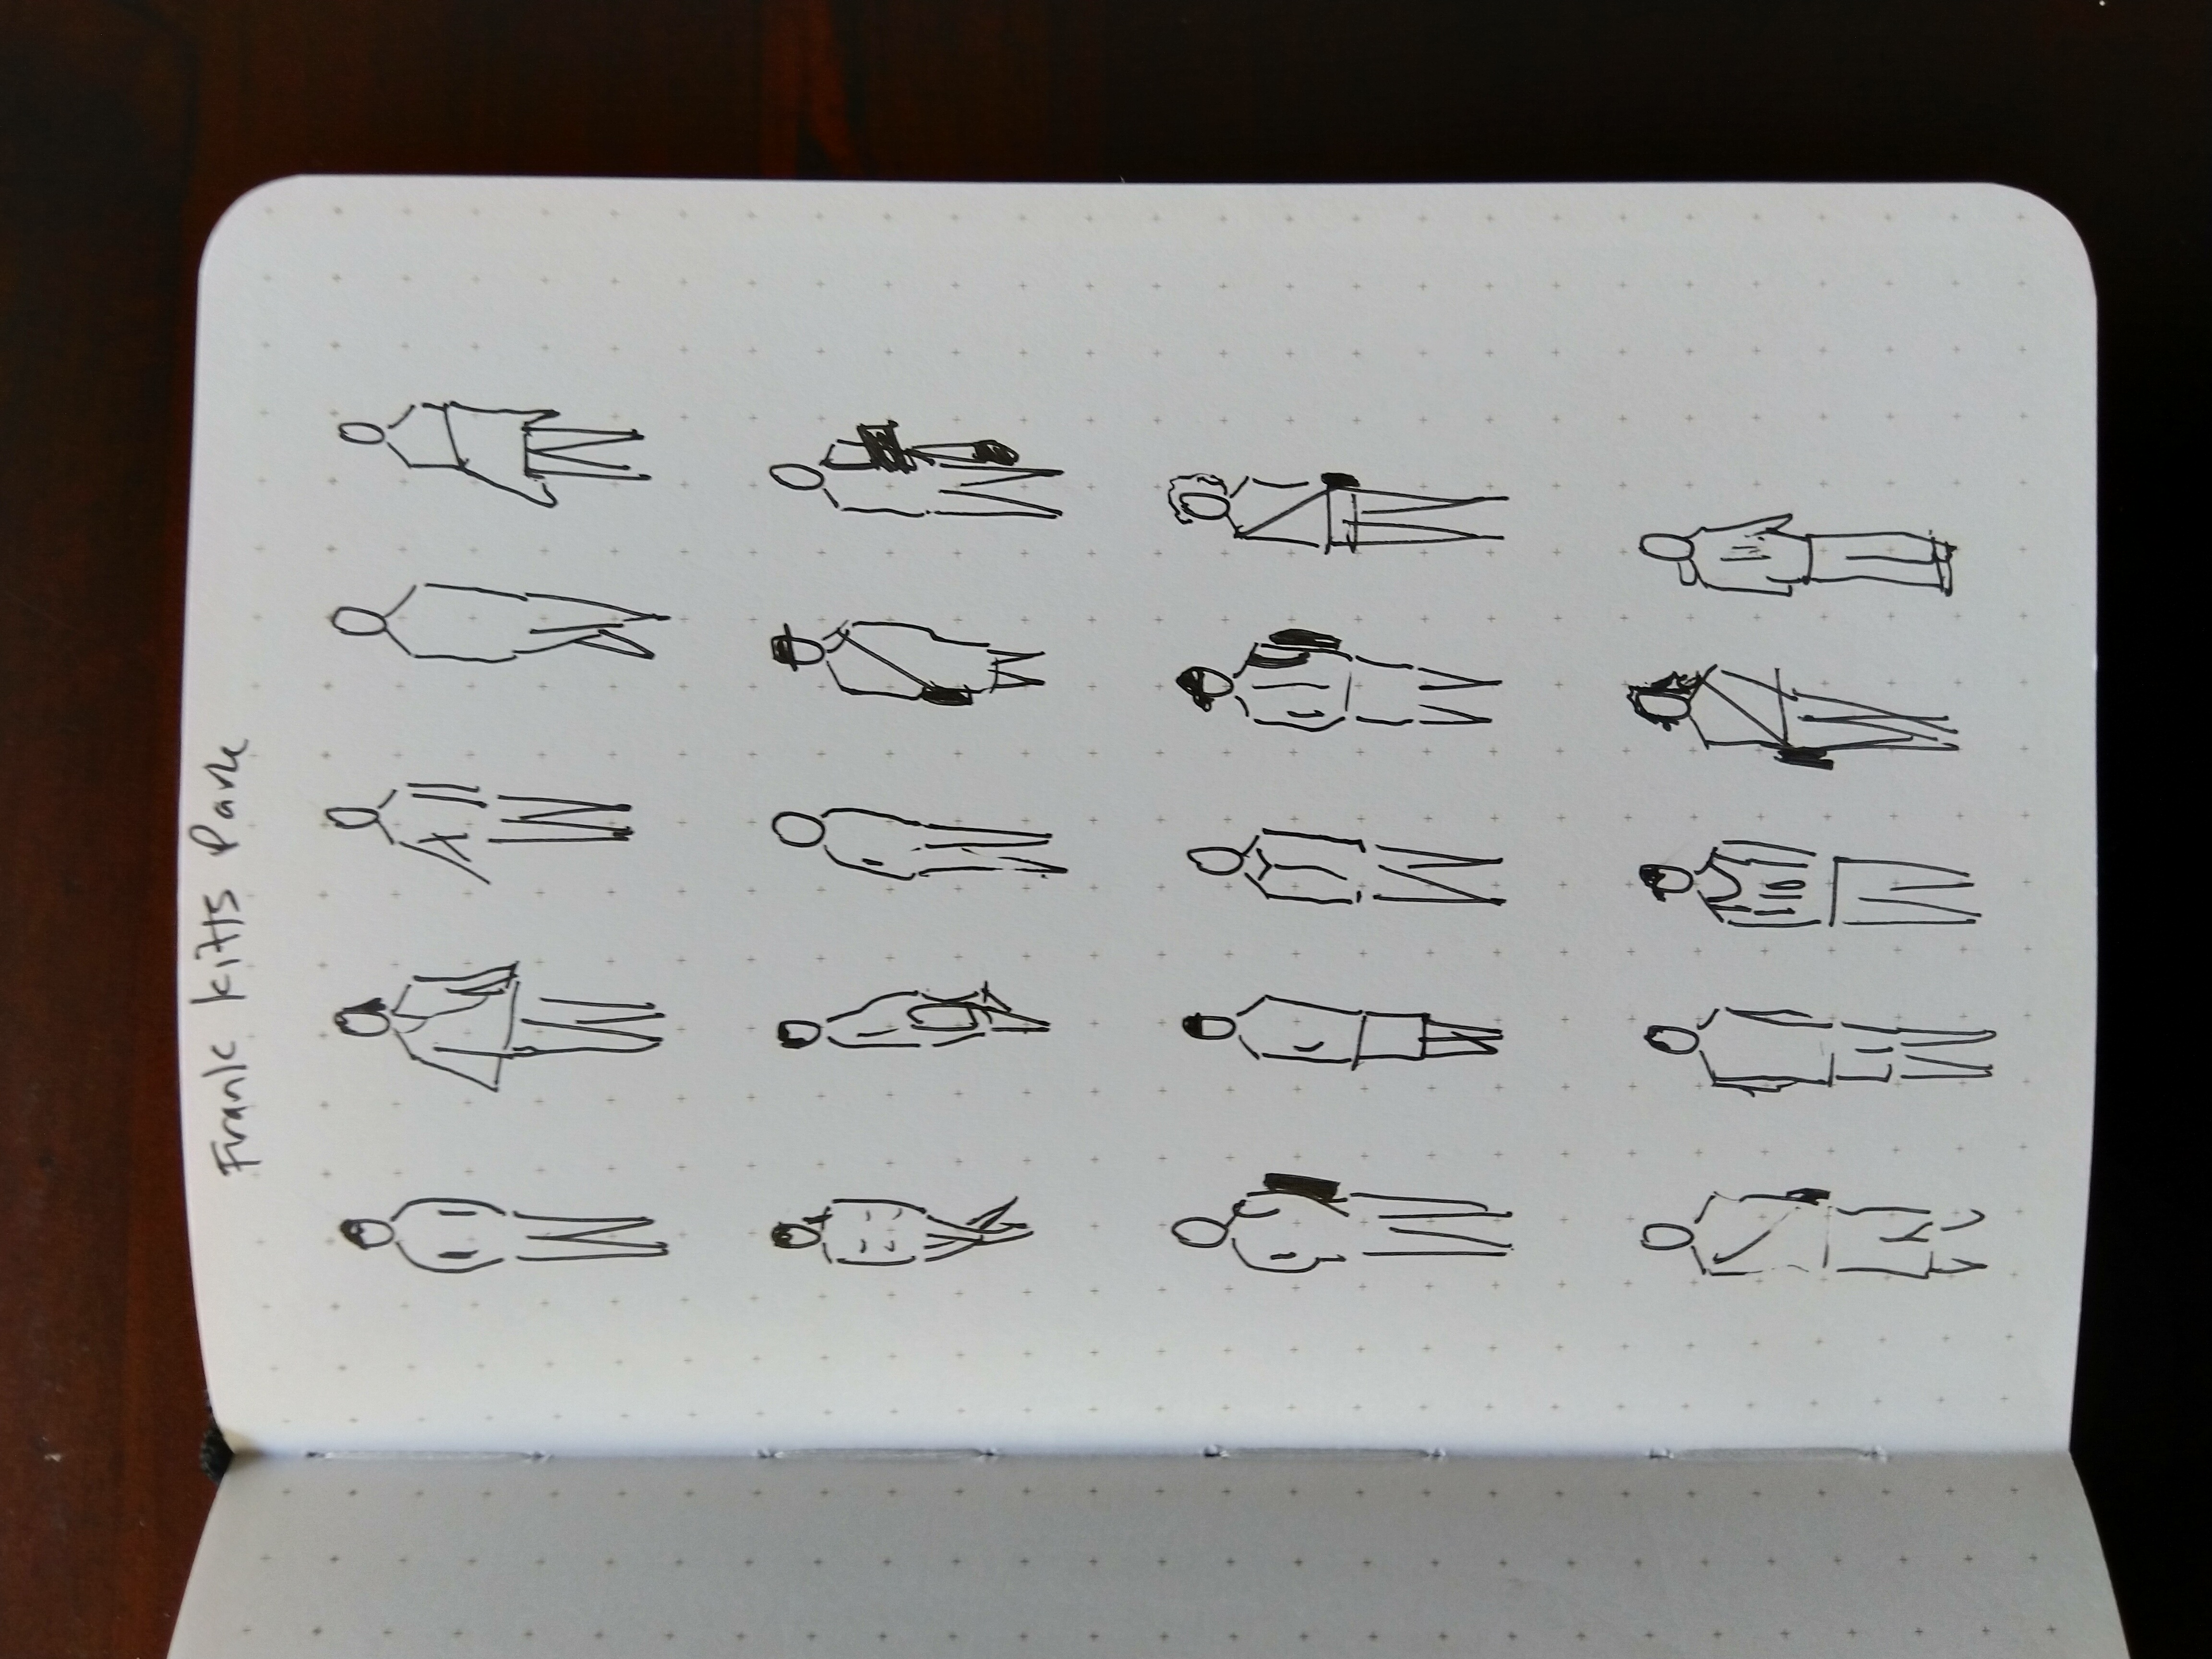 Frank Kitts Park